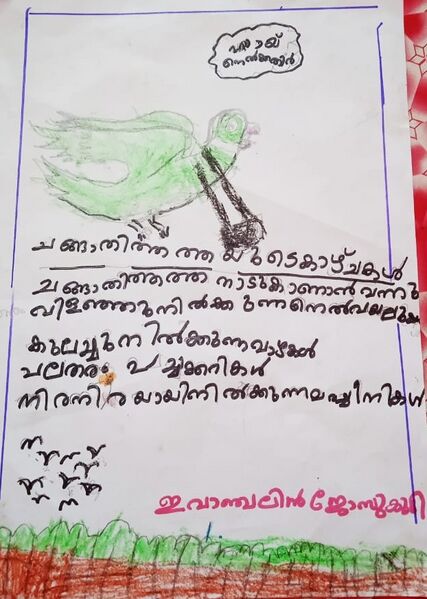 ഹായ്
നെൽക്കതിർ
ചങ്ങാതിത്തത്തയുടെകാഴ്ചകൾ
ചങ്ങാതിത്തത്ത നാടുകാണാൻ വന്നു
വിളഞ്ഞുനിൽക്കുന്നനെൽവയലുകൾ
കുലച്ചുനിൽക്കുന്നവാഴകൾ
പലതരം പച്ചക്കറികൾ
നിരനിരയായിനിൽക്കുന്ന
ഇവാഞ്ചലിൻ ജോസുകുട്ടി